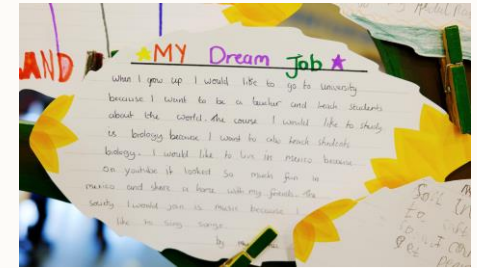 MY Dream Job
AND
When I grow up I would like to go to university
because I want to be a teacher and teach students
about the world. the course I would like to study
is biology because I want to also teach students
biology. I would like to live in Mexico because
on youtube it looked so much fun in
mexico and share a home with my friends. the
society I would join is music because I
like to sing songs.
by